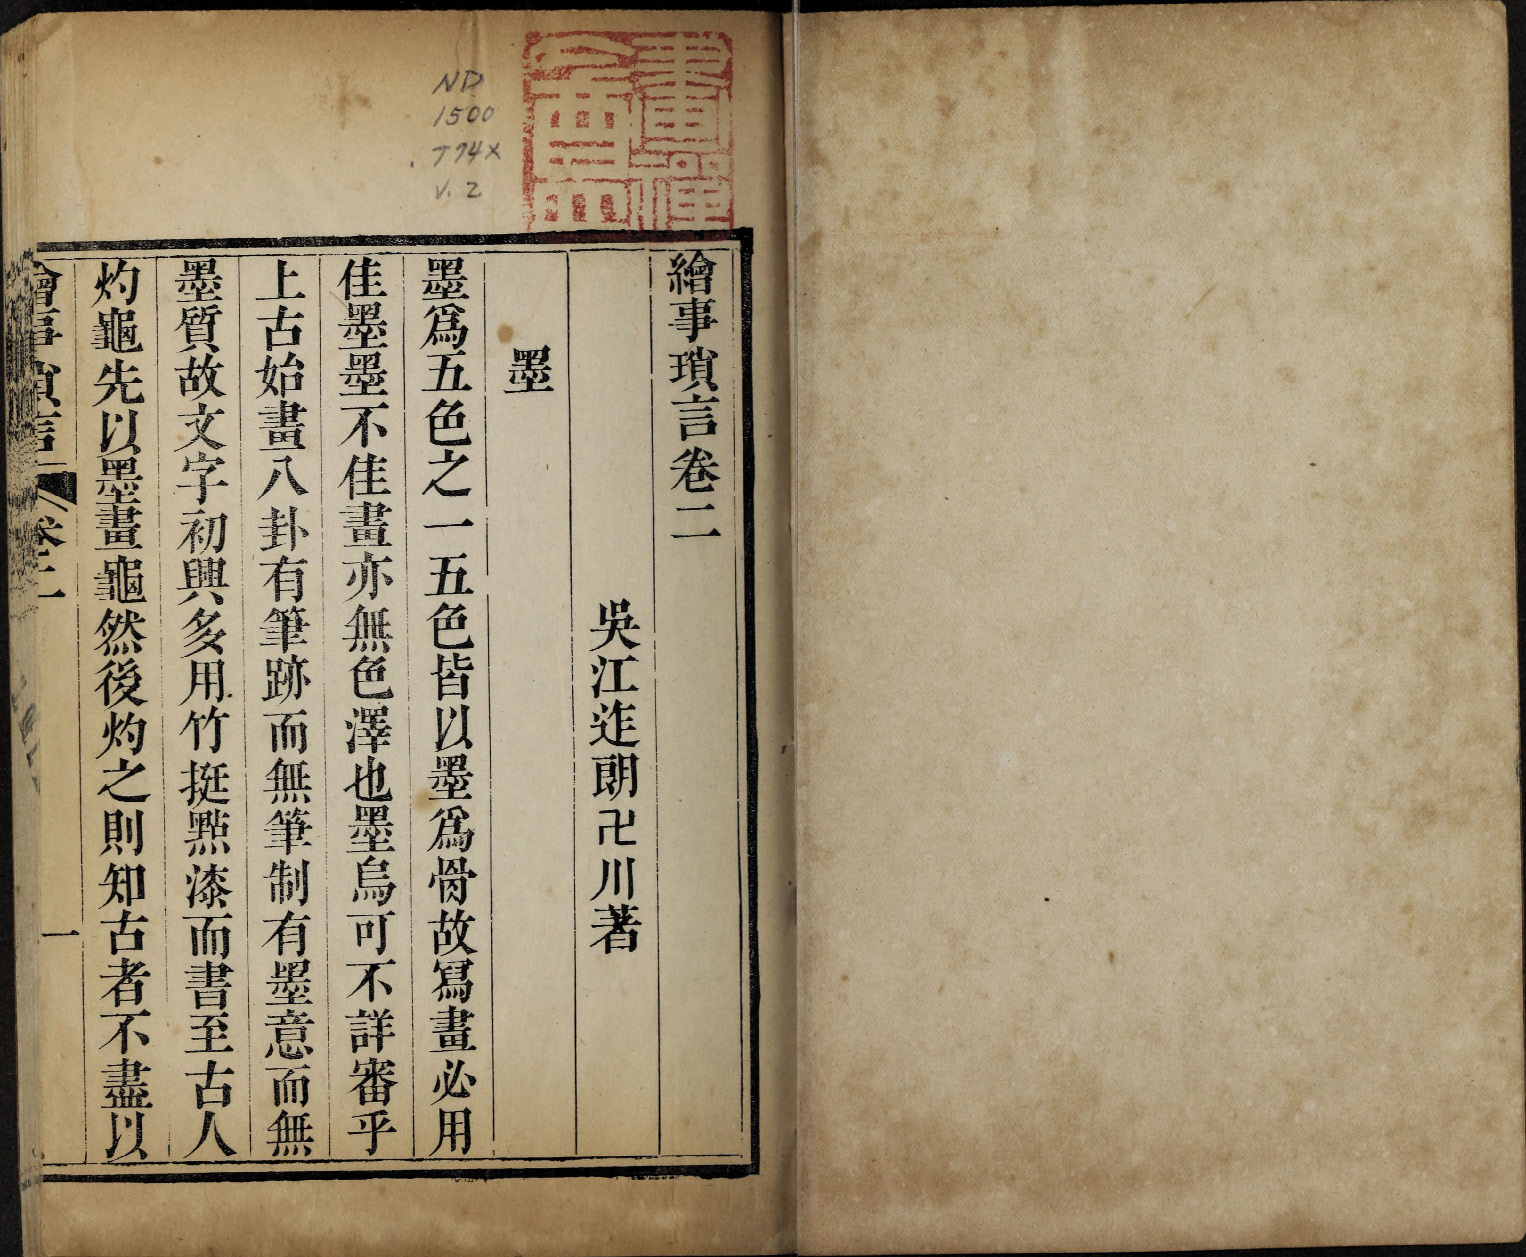 ND
1500
T74X
v. 2
繪事瑣言卷二
吳江迮朗卍川著
墨
墨爲五色之一五色皆以墨爲骨故寫畫必用
佳墨墨不佳畫亦無色澤也墨烏可不詳審乎
上古始畫八卦有筆跡而無筆制有墨意而無
墨質故文字初興多用竹挺點漆而書至古人
灼龜先以墨畫龜然後灼之則知古者不盡以
繪事瑣言
卷二
一